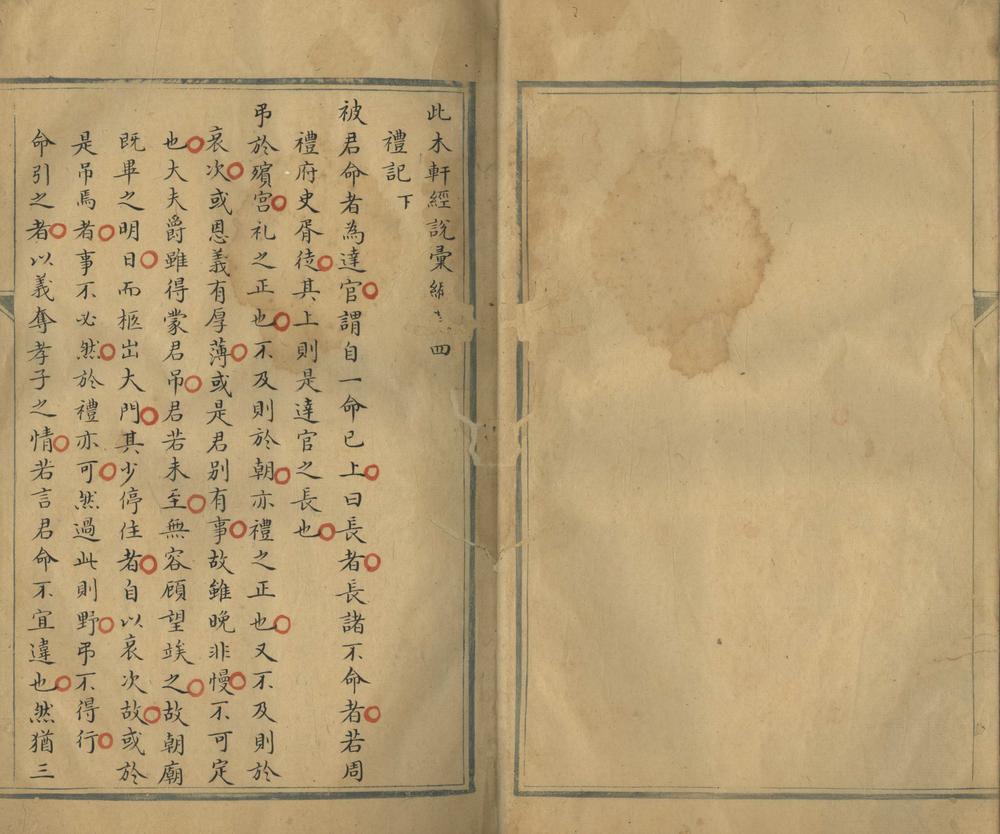 此木軒經說彙編 四
禮記下
被君命者為達官謂自一命已上曰長者長諸不命者若周
禮府史胥徒其上則是達官之長也
弔於殯宮礼之正也不及則於朝亦禮之正也又不及則於
哀次或恩義有厚薄或是君别有事故雖晚非慢不可定
也大夫爵雖得蒙君吊君若未至無容顧望竢之故朝廟
既畢之明日而柩出大門其少停住者自以哀次故或於
是吊焉者事不必然於禮亦可然過此則野弔不得行
命引之者以義奪孝子之情若言君命不宜違也然猶三